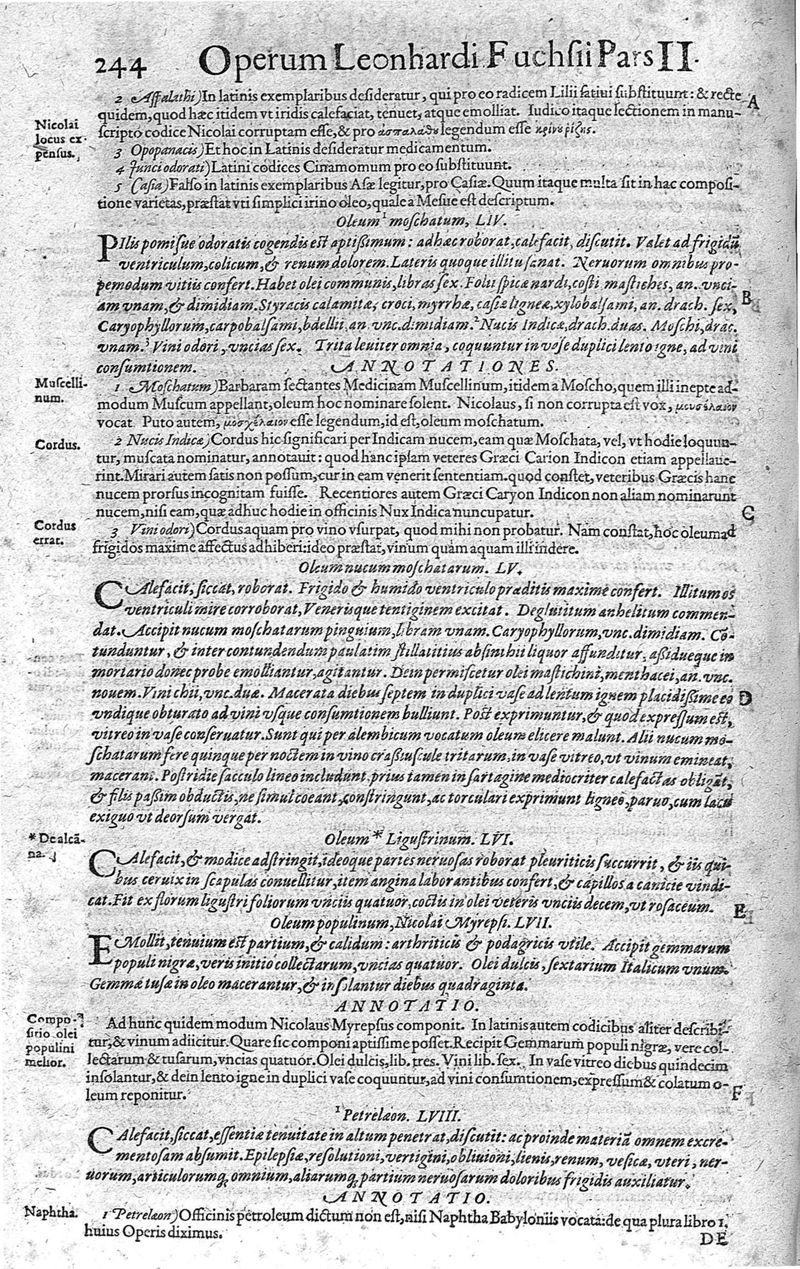 244 Operum Leonhardi Fuchsii Pars II.
2 Aspalathi) In latinis exemplaribus desideratur, qui pro eo radicem Lilii satiui substituunt: & recte A
quidem, quod hæc itidem vt iridis calefaciat, tenuet, atque emolliat. Iudico itaque lectionem in manu-
Nicolai
locus ex-
pensus.
scripto codice Nicolai corruptam esse, & pro ἀσπαλάθου legendum esse κρίνου ῥίζης.
3 Opopanacis) Et hoc in Latinis desideratur medicamentum.
4 Junci odorati) Latini codices Cinamomum pro eo substituunt.
5 Casia) Falso in latinis exemplaribus Asæ legitur, pro Casiæ. Quum itaque multa sit in hac composi-
tione varietas, præstat vti simplici irino oleo, quale a Mesue est descriptum.
Oleum ¹ moschatum, LIV.
PIlis pomisue odoratis cogendis est aptißimum: adhæc roborat, calefacit, discutit. Valet ad frigidũ
ventriculum, colicum, & renum dolorem. Lateris quoque illitu sanat. Neruorum omnibus pro-
pemodum vitiis confert. Habet olei communis, libras sex. Folii spicæ nardi, costi mastiches, an. vnci-
am vnam, & dimidiam. Styracis calamitæ, croci, myrrhæ, casiæ ligneæ, xylobalsami, an. drach. sex, B
Caryophyllorum, carpobalsami, bdellii, an vnc. dimidiam. ² Nucis Indicæ, drach. duas. Moschi, drac.
vnam. ³ Vini odori, vncias sex. Trita leuiter omnia, coquuntur in vase duplici lento igne, ad vini
consumtionem. ANNOTATIONES.
Muscelli-
num.
1 Moschatum) Barbaram sectantes Medicinam Muscellinum, itidem a Moscho, quem illi inepte ad-
modum Muscum appellant, oleum hoc nominare solent. Nicolaus, si non corrupta est vox, μουσέλαιον
vocat Puto autem, μοσχέλαιον esse legendum, id est, oleum moschatum.
Cordus.
2 Nucis Indicæ) Cordus hic significari per Indicam nucem, eam quæ Moschata, vel, vt hodie loquun-
tur, muscata nominatur, annotauit: quod hanc ipsam veteres Græci Carion Indicon etiam appellaue-
rint. Mirari autem satis non possum, cur in eam venerit sententiam. quod constet, veteribus Græcis hanc
nucem prorsus incognitam fuisse. Recentiores autem Græci Caryon Indicon non aliam nominarunt
nucem, nisi eam, quæ adhuc hodie in officinis Nux Indica nuncupatur. C
Cordus
errat.
3 Vini odori) Cordus aquam pro vino vsurpat, quod mihi non probatur. Nam constat, hoc oleum ad
frigidos maxime affectus adhiberi: ideo præstat, vinum quàm aquam illi indere.
Oleum nucum moschatarum. LV.
CAlefacit, siccat, roborat. Frigido & humido ventriculo præditis maxime confert. Illitum os
ventriculi mire corroborat, Venerisque tentiginem excitat. Deglutitum anhelitum commen-
dat. Accipit nucum moschatarum pinguium, libram vnam. Caryophyllorum, vnc. dimidiam. Cō-
tunduntur, & inter contundendum paulatim stillatitius absinthii liquor affunditur, aßidueque in
mortario donec probe emolliantur, agitantur. Dein permiscetur olei mastichini, menthacei, an. vnc.
nouem. Vini chii, vnc. duæ. Macerata diebus septem in duplici vase ad lentum ignem placidißime eo D
vndique obturato ad vini vsque consumtionem bulliunt. Post exprimuntur, & quod expressum est,
vitreo in vase conseruatur. Sunt qui per alembicum vocatum oleum elicere malunt. Alii nucum mo-
schatarum fere quinque per noctem in vino craßiuscule tritarum, in vase vitreo, vt vinum emineat,
macerant. Postridie sacculo lineo includunt, prius tamen in sartagine mediocriter calefactas obligāt,
& filis paßim obductis, ne simul coeant, constringunt, ac torculari exprimunt ligneo, paruo, cum lacu
exiguo vt deorsum vergat.
* De alcã-
na.
Oleum * Ligustrinum. LVI.
CAlefacit, & modice adstringit, ideoque partes neruosas roborat pleuriticis succurrit, & iis qui-
bus ceruix in scapulas conuellitur, item angina laborantibus confert, & capillos a canicie vindi-
cat. Fit ex florum ligustri foliorum vnciis quatuor, coctis in olei veteris vnciis decem, vt rosaceum. E
Oleum populinum, Nicolai Myrepsi. LVII.
EMollit, tenuium est partium, & calidum: arthriticis & podagricis vtile. Accipit gemmarum
populi nigræ, veris initio collectarum, vncias quatuor. Olei dulcis, sextarium Italicum vnum.
Gemmæ tusæ in oleo macerantur, & insolantur diebus quadraginta.
ANNOTATIO.
Compo-
sitio olei
populini
melior.
Ad hunc quidem modum Nicolaus Myrepsus componit. In latinis autem codicibus aliter describi-
tur, & vinum adiicitur. Quare sic componi aptissime posset. Recipit Gemmarum populi nigræ, vere col-
lectarum & tusarum, vncias quatuor. Olei dulcis, lib. tres. Vini lib. sex. In vase vitreo diebus quindecim
insolantur, & dein lento igne in duplici vase coquuntur, ad vini consumtionem, expressum & colatum o-
leum reponitur. F
¹ Petrelæon. LVIII.
CAlefacit, siccat, essentiæ tenuitate in altum penetrat, discutit: ac proinde materiā omnem excre-
mentosam absumit. Epilepsiæ, resolutioni, vertigini, obliuioni, lienis, renum, vesicæ, vteri, ner-
uorum, articulorumq; omnium, aliarumq; partium neruosarum doloribus frigidis auxiliatur.
ANNOTATIO.
Naphtha.
1 Petrelæon) Officinis petroleum dictum non est, nisi Naphtha Babyloniis vocata: de qua plura libro 1.
huius Operis diximus.
DE